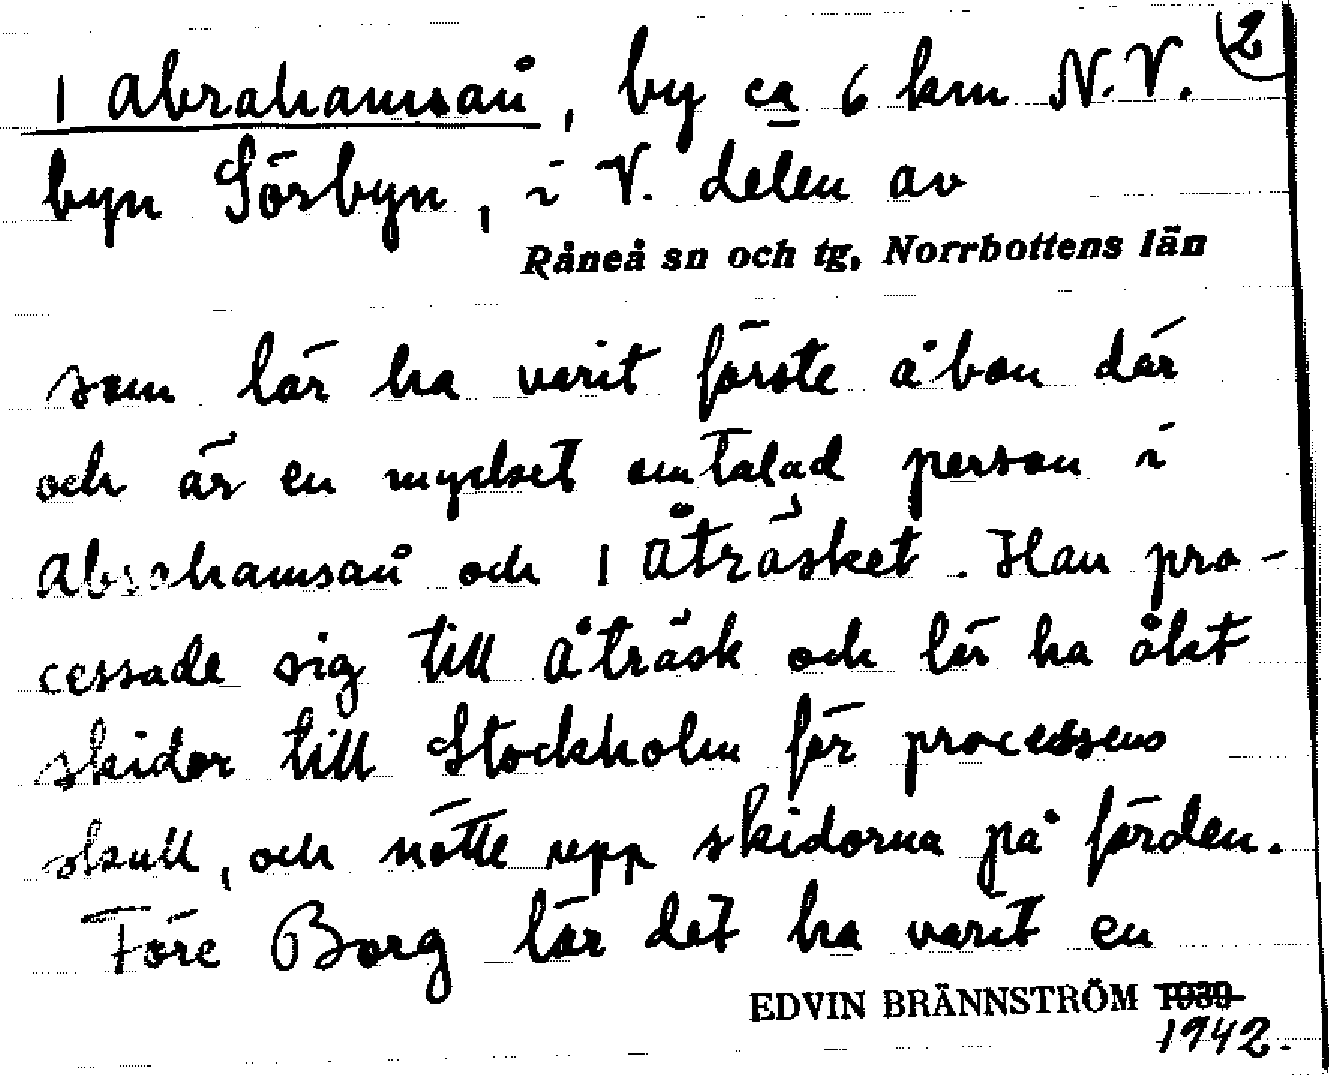 2
1 Abrahamsån, by ca 6 km N.V.
byn Sörbyn, i V. delen av
Råneå sn och tg, Norrbottens län
som lär ha varit förste åbon där
och är en mycket omtalad person i
Abrahamsån och 1 Åträsket. Han pro-
cessade sig till Åträsk och lär ha åkt
skidor till Stockholm för processens
skull, och nötte upp skidorna på färden.
Före Borg lär det ha varit en
EDVIN BRÄNNSTRÖM 1930
1942.